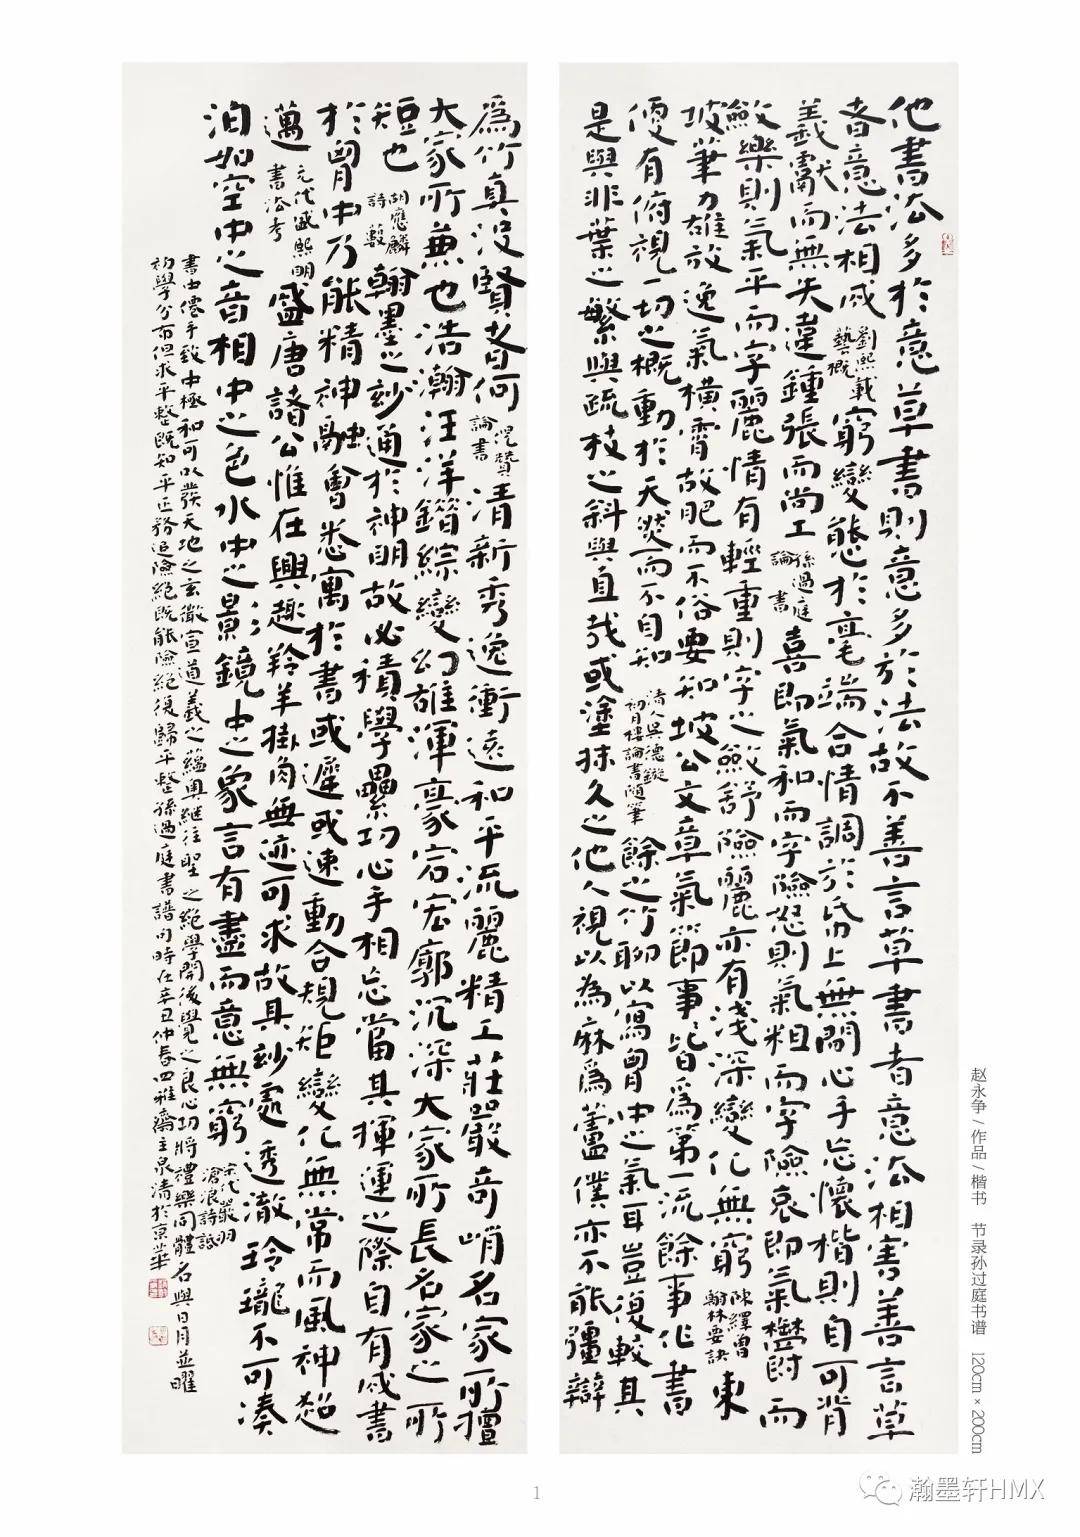 他書法多於意草書則意多於法故不善言草書者意法相害善言草
者意法相成劉熙載藝概窮變態於毫端合情調於帋上無閒心手忘懷楷則自可背
羲獻而無失違鍾張而尚工孫過庭論書喜即氣和而字險怒則氣粗而字險哀即氣欝而
斂樂則氣平而字麗情有輕重則字之斂舒險麗亦有淺深變化無窮陳繹曾翰林要訣東
坡筆力雄放逸氣橫霄故肥而不俗要知坡公文章氣節事皆爲第一流餘事作書
便有俯視一切之概動於天然而不自知清人吳德鏇初月樓論書隨筆餘之竹聊以寫胷中之氣耳豈復較其
是與非葉之繁與疏枝之斜與直哉或塗抹久之他人視以為麻爲蘆僕亦不能彊辯
爲竹真没賢者何倪瓚論書清新秀逸衝遠和平流麗精工莊嚴奇峭名家所擅
大家所兼也浩瀚汪洋錯綜變幻雄渾豪宕宏廓沉深大家所長名家之所
短也胡應麟詩藪翰墨之妙通於神明故必積學纍功心手相忘當其揮運之際自有成書
於胷中乃能精神融會悉寓於書或遲或速動合規矩變化無常而風神超
邁元代盛熙明書法考盛唐諸公惟在興趣羚羊掛角無迹可求故其妙處透澈玲瓏不可湊
泊如空中之音相中之色水中之景鏡中之象言有盡而意無窮宋代嚴羽滄浪詩話
書由儒手致中極和可以發天地之玄微宣道義之蘊奧繼往聖之絕學開後覺之良心功將禮樂同體名與日月並曜
初學分布但求平整既知平正務追險絕既能險絕復歸平整孫過庭書譜句時在辛丑仲春四雅齋主泉清於京華
赵永争 / 作品 / 楷书 节录孙过庭书谱 120cm×200cm
1
瀚墨轩HMX